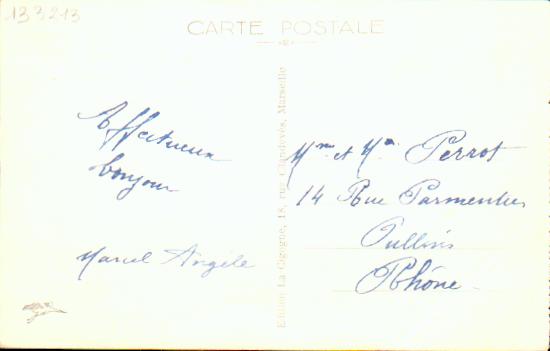 133213
CARTE POSTALE
Affectueux
bonjour
Marcel Angèle
Edition La Cigogne, 18, rue Chandevès, Marseille
Mme et Mr Perrot
14 Rue Parmentier
Oullins
Rhône